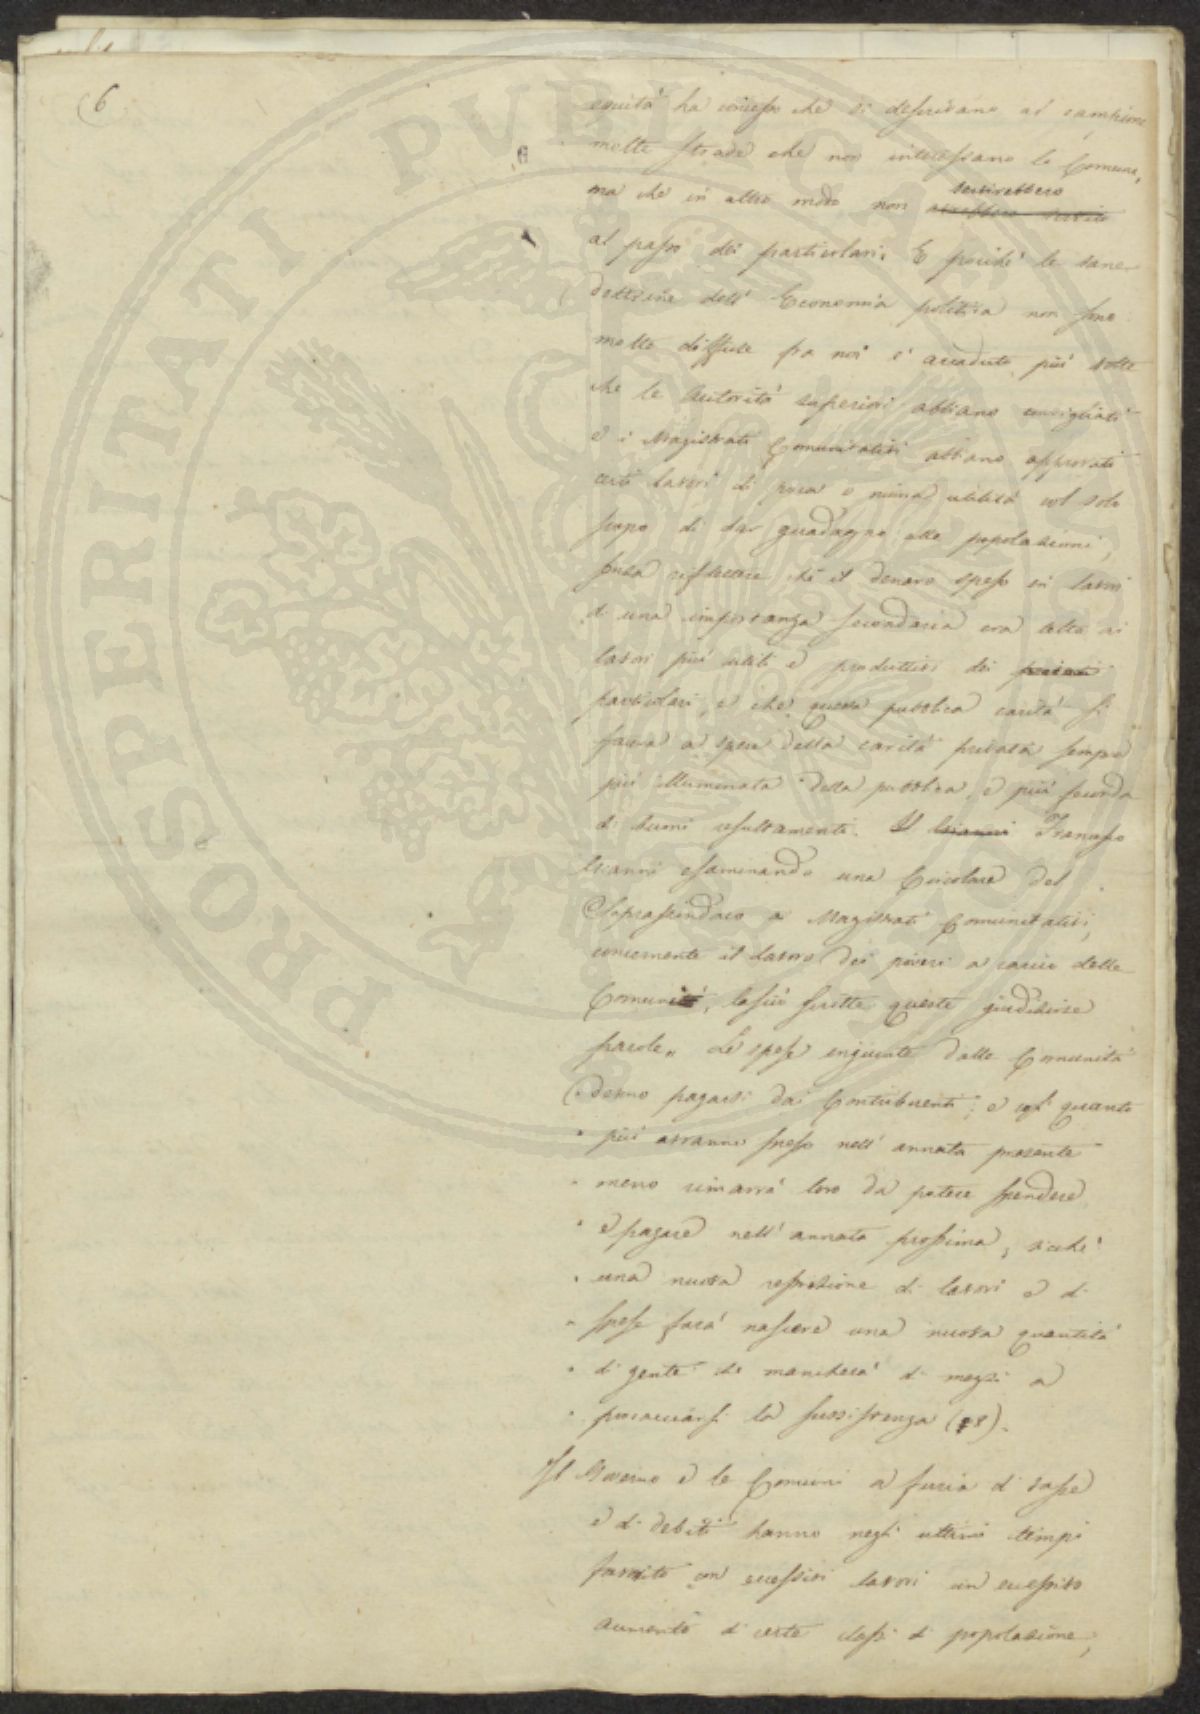 6
equità ha concesso che si descrivano al campione
molte strade che non interessano le Comuni,
ma che in altro modo non avrebbero servito servirebbero
al passo dei particolari. E poiché le sane
dottrine dell' Economia politica non sono
molto diffuse fra noi è accaduto più volte
che le Autorità superiori abbiano consigliati
e i Magistrati Comunitativi abbiano approvati
certi lavori di poca o niuna utilità col solo
scopo di dar guadagno alle popolazioni,
senza riflettere che il denaro speso in lavori
di una importanza secondaria era tolto ai
lavori più utili e produttivi dei privati
particolari, e che questa pubblica carità si
faceva a spese della carità privata sempre
più illuminata della pubblica, e più feconda
di buoni resultamenti. Il Gianni Francesco
Gianni esaminando una Circolare del
Soprassindaco a Magistrati Comunitativi,
concernente il lavoro dei poveri a carico delle
Comunità, lasciò scritte queste giudiziose
parole „ Le spese ingiunte dalle Comunità
devono pagarsi dai Contribuenti; e così quanto
" più avranno speso nell' annata presente
" meno rimarrà loro da potere spendere
" e pagare nell' annata prossima, sicché
" una nuova repetizione di lavori e di
" spese farà nascere una nuova quantità
" di gente che mancherà di mezzi a
" procacciarsi la sussistenza (8).
Il Governo e le Comuni a furia di tasse
e di debiti hanno negli ultimi tempi
favorito con eccessivi lavori un eccessivo
aumento di certe classi di popolazione,
PROSPERITATI PUBLICAE